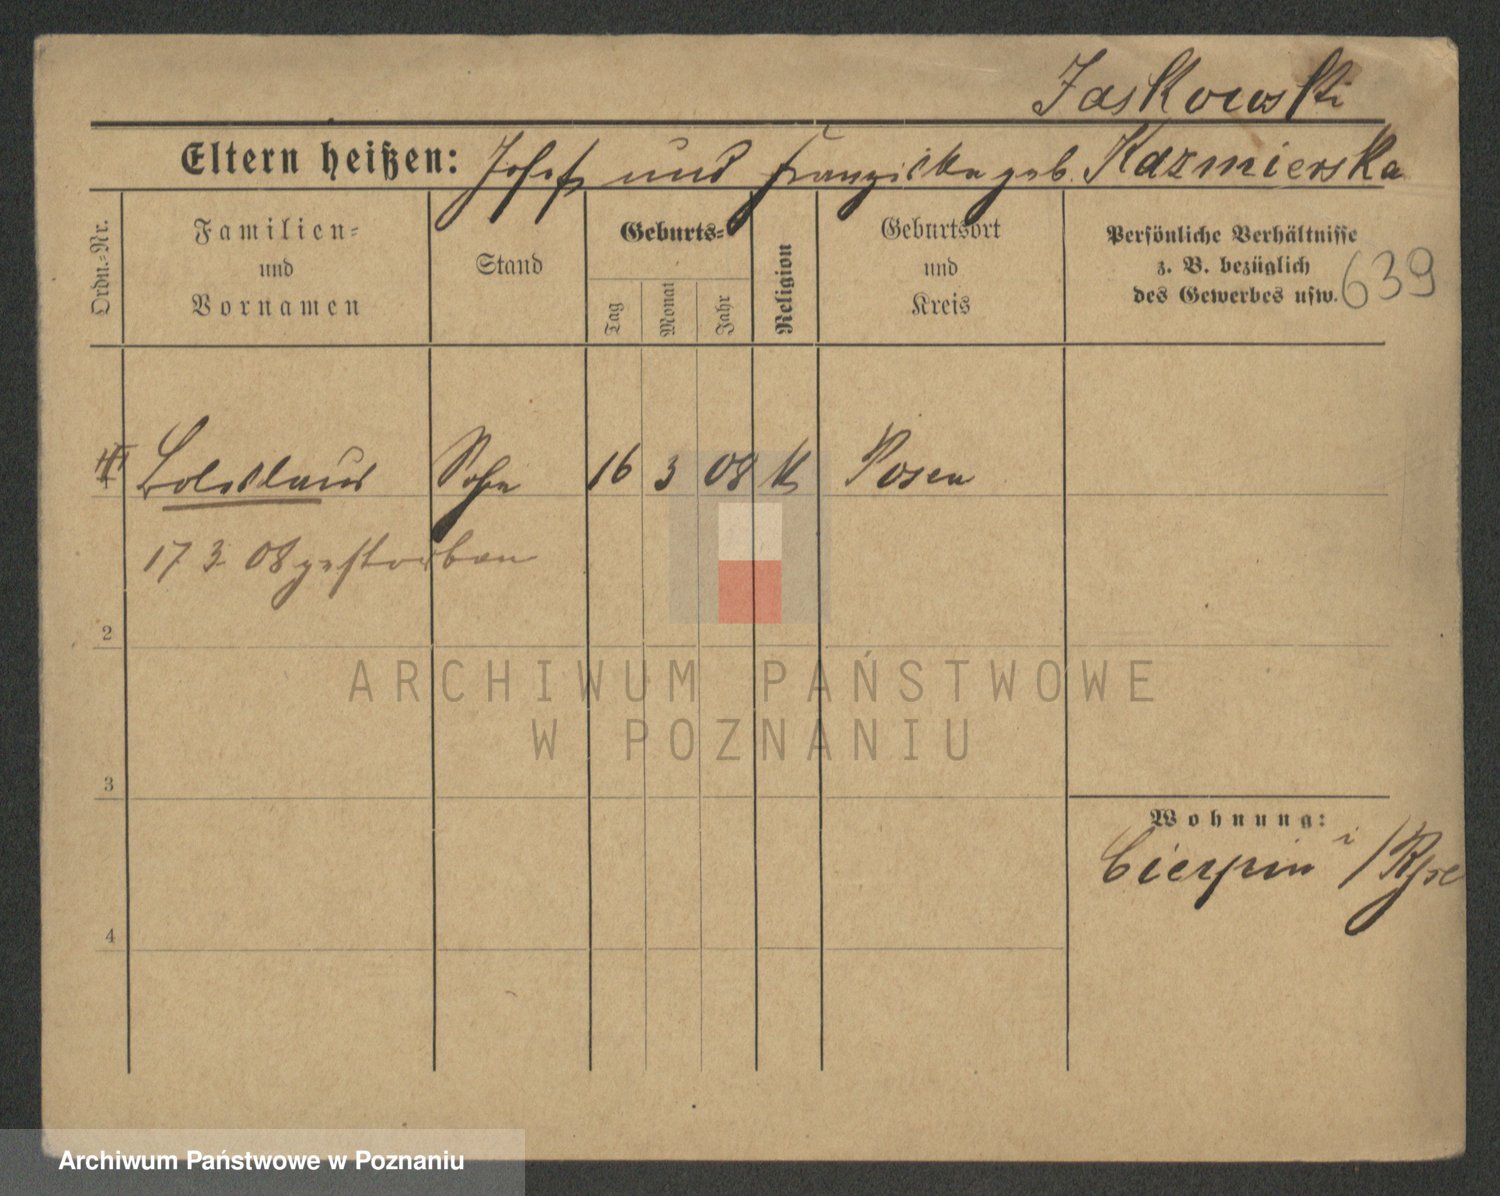 Jaskowski
Eltern heißen: Josef und Franziska geb. Kazmierska
Ordn.-Nr.
Familien-
und
Vornamen
Stand
Geburts-
Tag
Monat
Jahr
Religion
Geburtsort
und
Kreis
Persönliche Verhältnisse
z. B. bezüglich
des Gewerbes usw.
639
Boleslaus Sohn 16 3 08 K Posen
17 3 08 gestorben
2
3
4
Wohnung:
Cierpin
ARCHIWUM PAŃSTWOWE
W POZNANIU
Archiwum Państwowe w Poznaniu